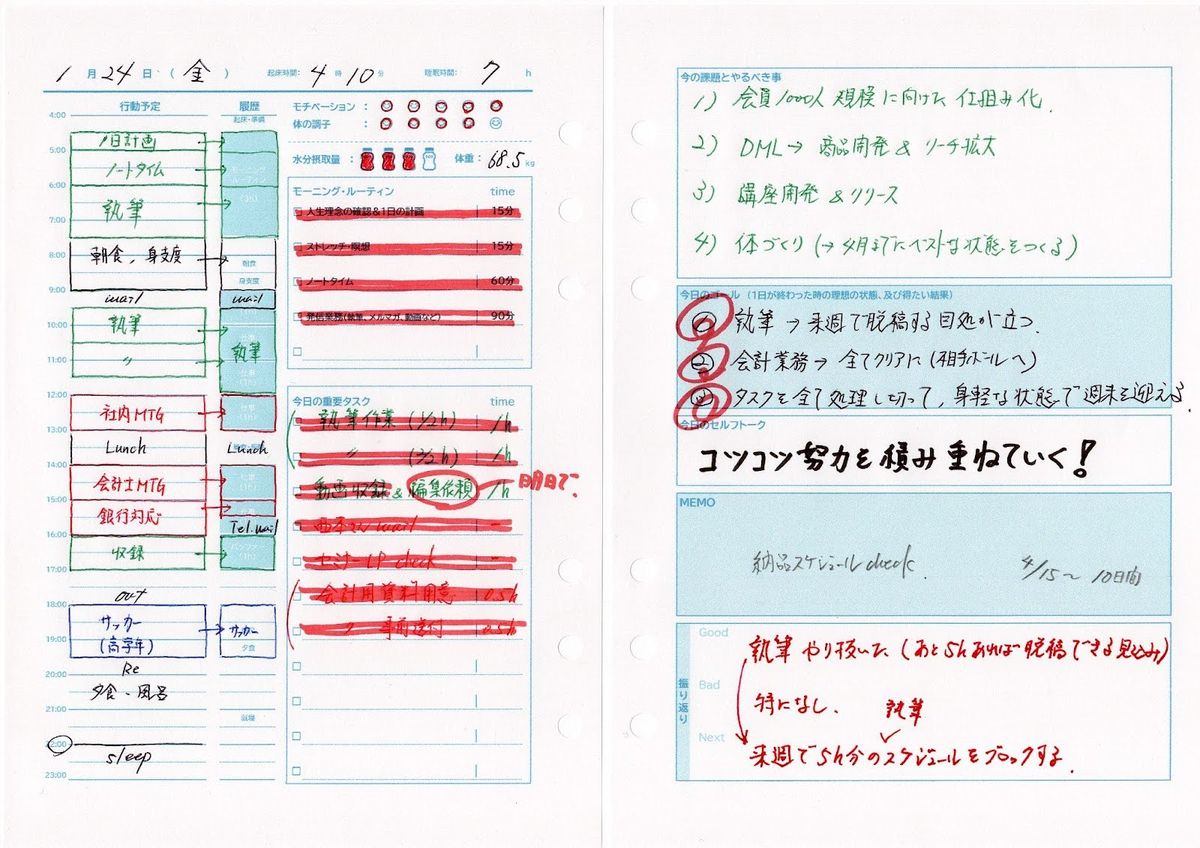 1月24日(金) 起床時間: 4時10分 睡眠時間: 7h
行動予定 履歴
起床・準備
4:00
1日計画
5:00
ノートタイム
6:00
執筆
7:00
8:00
朝食、身支度 朝食
身支度
9:00
mail mail
10:00
執筆 執筆
〃
11:00
12:00
社内MTG
13:00
Lunch Lunch
14:00
会計士MTG
15:00
銀行対応
Tel.mail
16:00
収録
17:00
out
18:00
サッカー サッカー
(高学年)
19:00
夕食
Re
20:00
夕食・風呂
21:00
就寝
22:00
sleep
23:00
モチベーション:
体の調子:
水分摂取量: 体重: 68.5kg
モーニング・ルーティン time
人生理念の確認&1日の計画 15分
ストレッチ・瞑想 15分
ノートタイム 60分
発信業務(執筆、メルマガ、動画など) 90分
今日の重要タスク time
執筆作業 (1/2h) 1h
〃 (2/2h) 1h
動画収録 & 編集依頼 1h 明日で.
セミナーLP check -
会計用資料用意 0.5h
〃 事前送付 0.5h
今の課題とやるべき事
1) 会員1000人規模に向けた仕組み化.
2) DML→ 商品開発 & リーチ拡大
3) 講座開発 & リリース
4) 体づくり(→4月までにベストな状態をつくる)
今日のゴール(1日が終わった時の理想の状態、及び得たい結果)
① 執筆 → 来週で脱稿する目処が立つ.
② 会計業務→ 全てクリアに(相手ボールへ)
③ タスクを全て処理し切って、身軽な状態で週末を迎える.
今日のセルフトーク
コツコツ努力を積み重ねていく!
MEMO
納品スケジュールcheck. 4/15〜10日間
振り返り
Good
執筆やり抜いた(あと5hあれば脱稿できる見込み)
Bad
特になし. 執筆
Next
来週で5h分のスケジュールをブロックする.